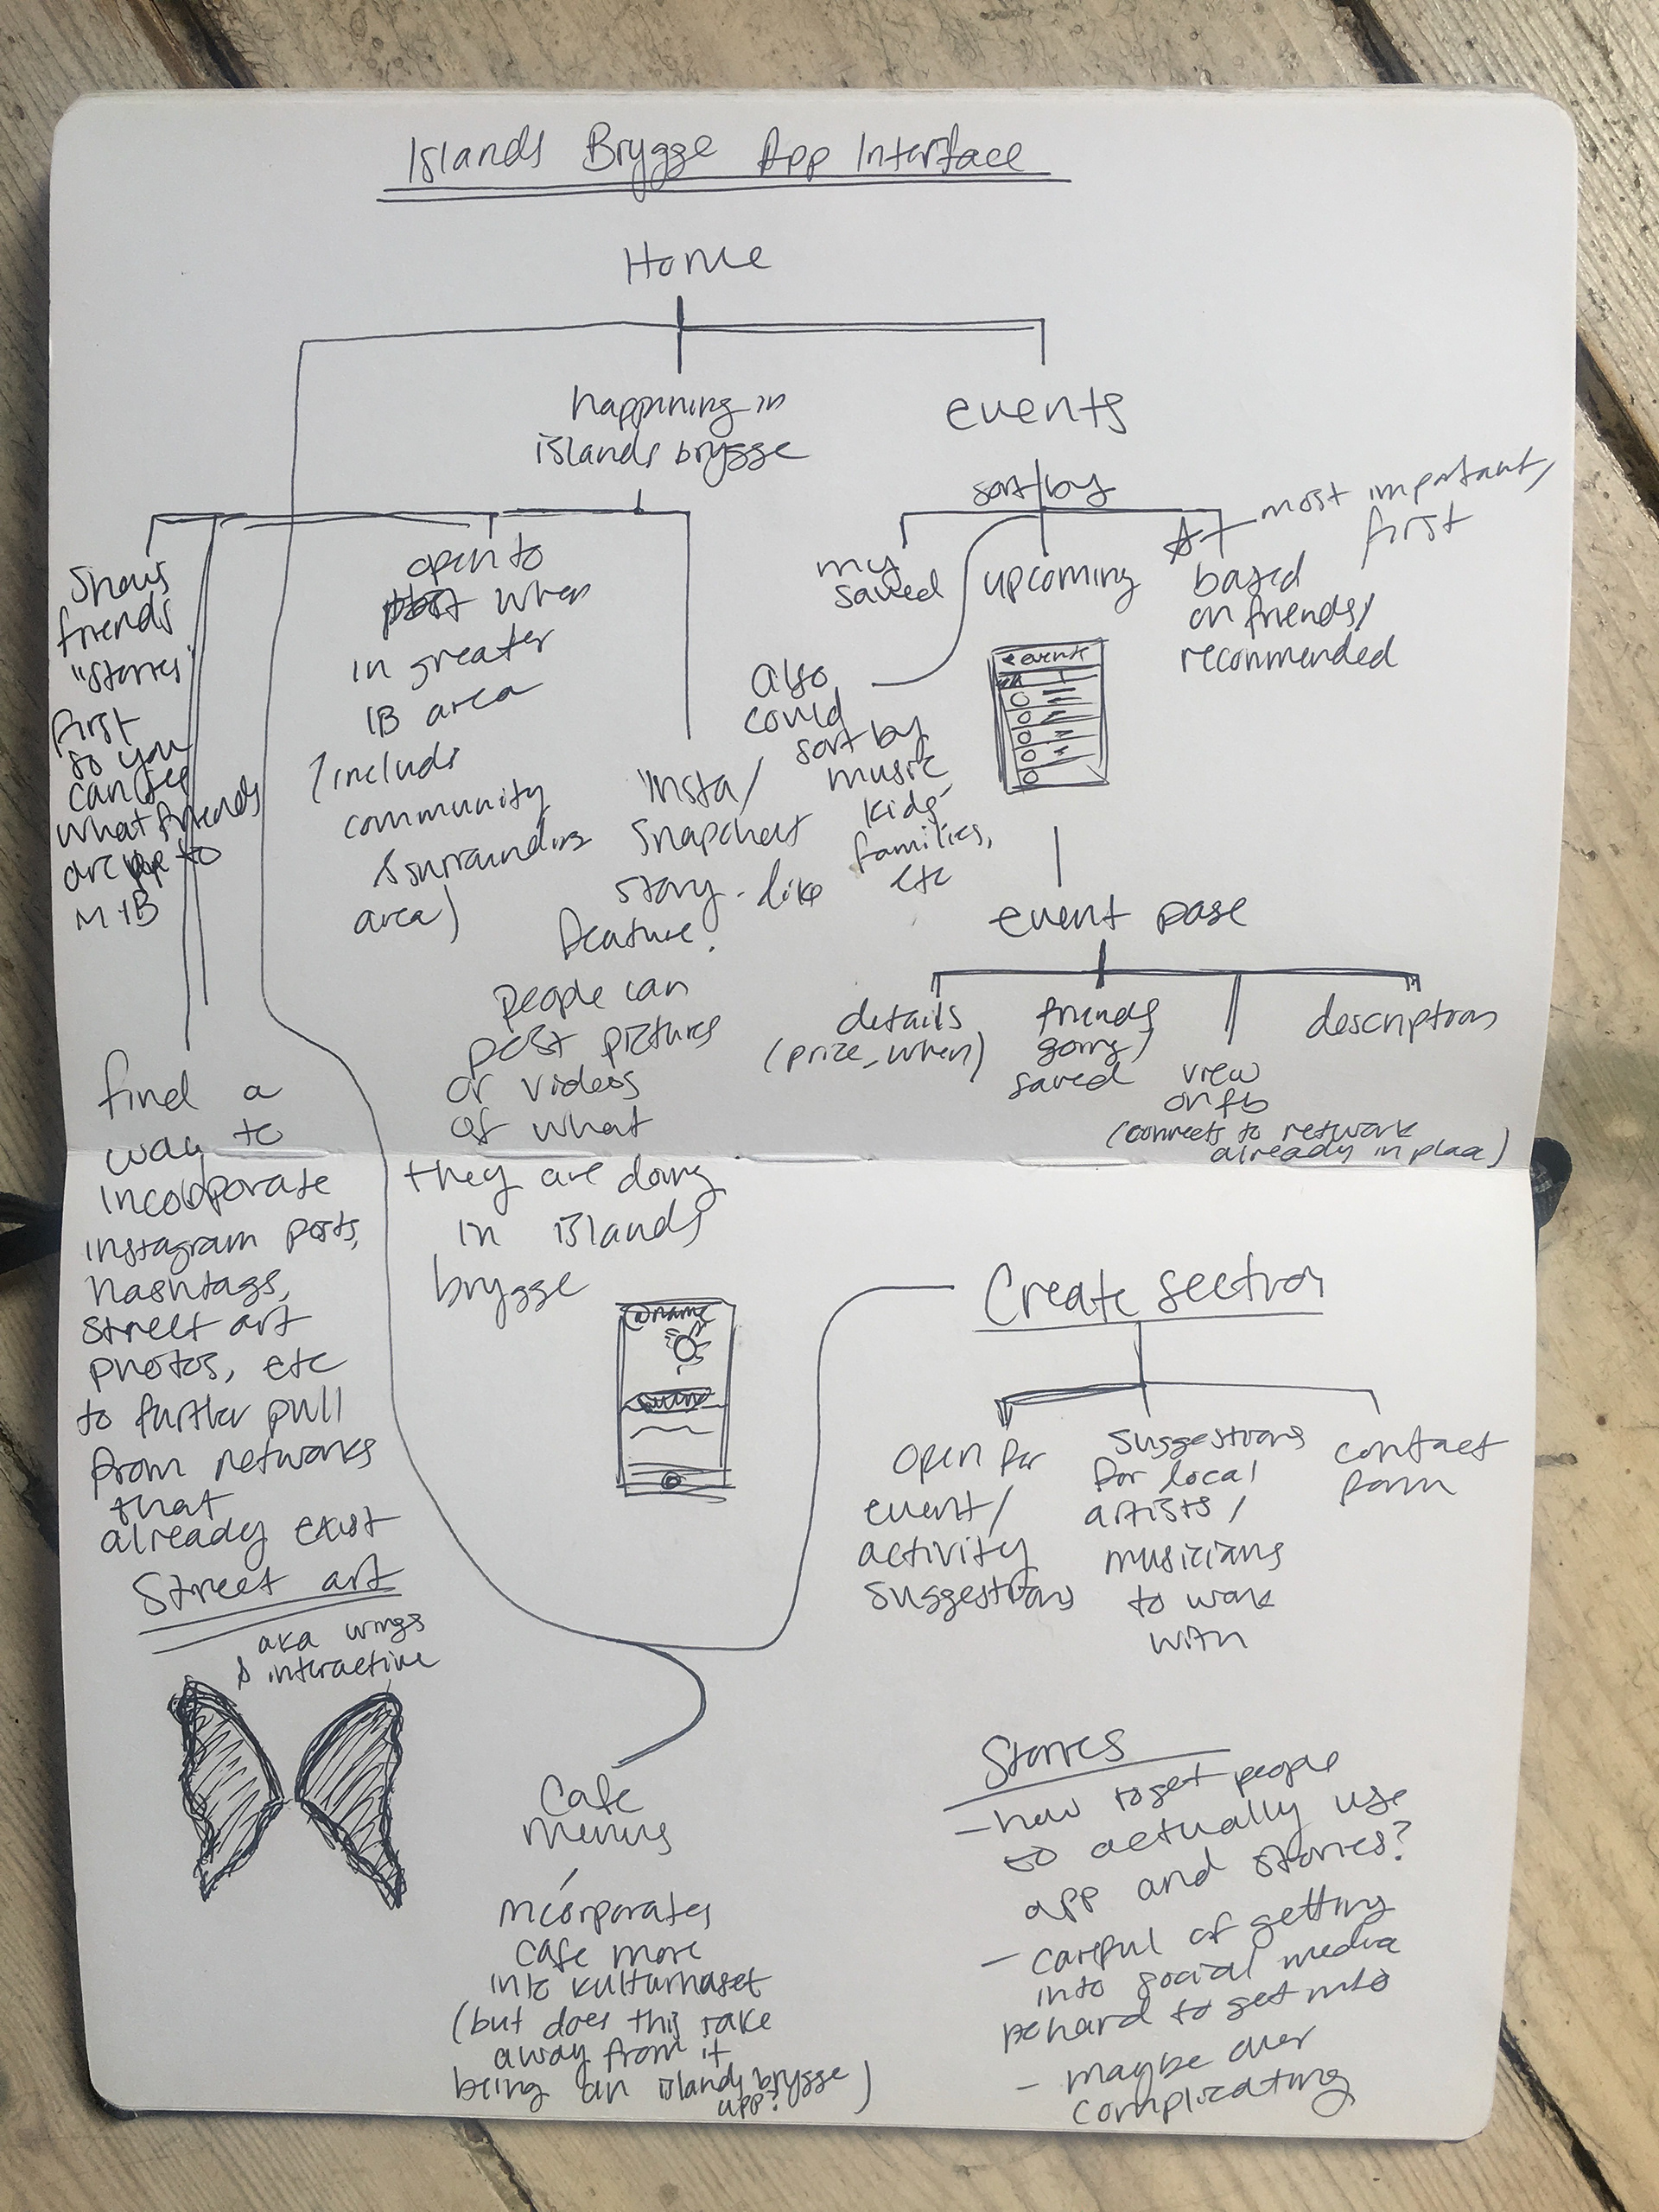 Islands Brygge App Interface
Home
happining in
islands brygge
events
shows
friends'
"stories"
first
so you
can see
what friends
are up to
in IB
open to
post when
in greater
IB area
(include
community
& surrounding
area)
"insta/
snapchat
story-like
feature.
people can
post pictures
or videos
of what
they are doing
in islands
brygge
@name
find a
way to
incorporate
instagram posts,
hashtags,
street art
photos, etc
to further pull
from networks
that
already exist
Street art
aka wings
& interactive
sort by
my
saved
upcoming
most important,
first
based
on friends/
recommended
also
could
sort by
music
kids
families,
etc
< events
event page
details
(price, when)
friends
going/
saved
view
on fb
(connects to network
already in place)
description
Create section
open for
event/
activity
suggestions
suggestions
for local
artists/
musicians
to work
with
contact
form
Cafe
menus
incorporates
cafe more
into kulturhuset
(but does this take
away from it
being an islands brygge
app?)
Stories
- how to get people
to actually use
app and stories?
- careful of getting
into social media
hard to get into
- maybe over
complicating